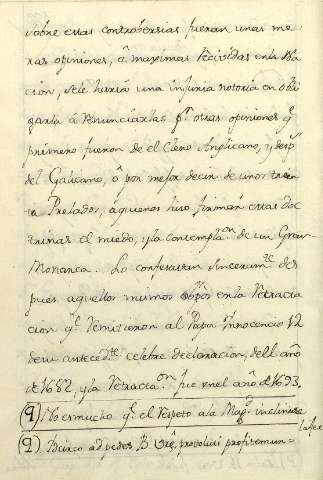 sobre estas controversias fueran unas me=
ras opiniones, ô maximas recividas en la Na
cion, se le haria una injuria notoria en obli
garla â renunciarlas pr. otras opiniones q.
primero fueron de el Clero Anglicano, y desp.
del Galicano, ô por mejor decir de unos trein
ta Prelados, â quienes hizo firmar estas doc
trinas el miedo, y la contemplaon. de un Gran
Monarca. Lo confesaron sinceramte. des
pues aquellos mismos Obpos. en la Retracta
cion q. remitieron al Papa Innocencio 12
de su antecedte. celebre declaracion, del año
de 1682, y la Retractaon. fue en el año de 1693.
(q) No es mucho q. el respeto a la Magd. inclinase
la fee
(2) ad pedes B. Vrê. provoluti profitemun=